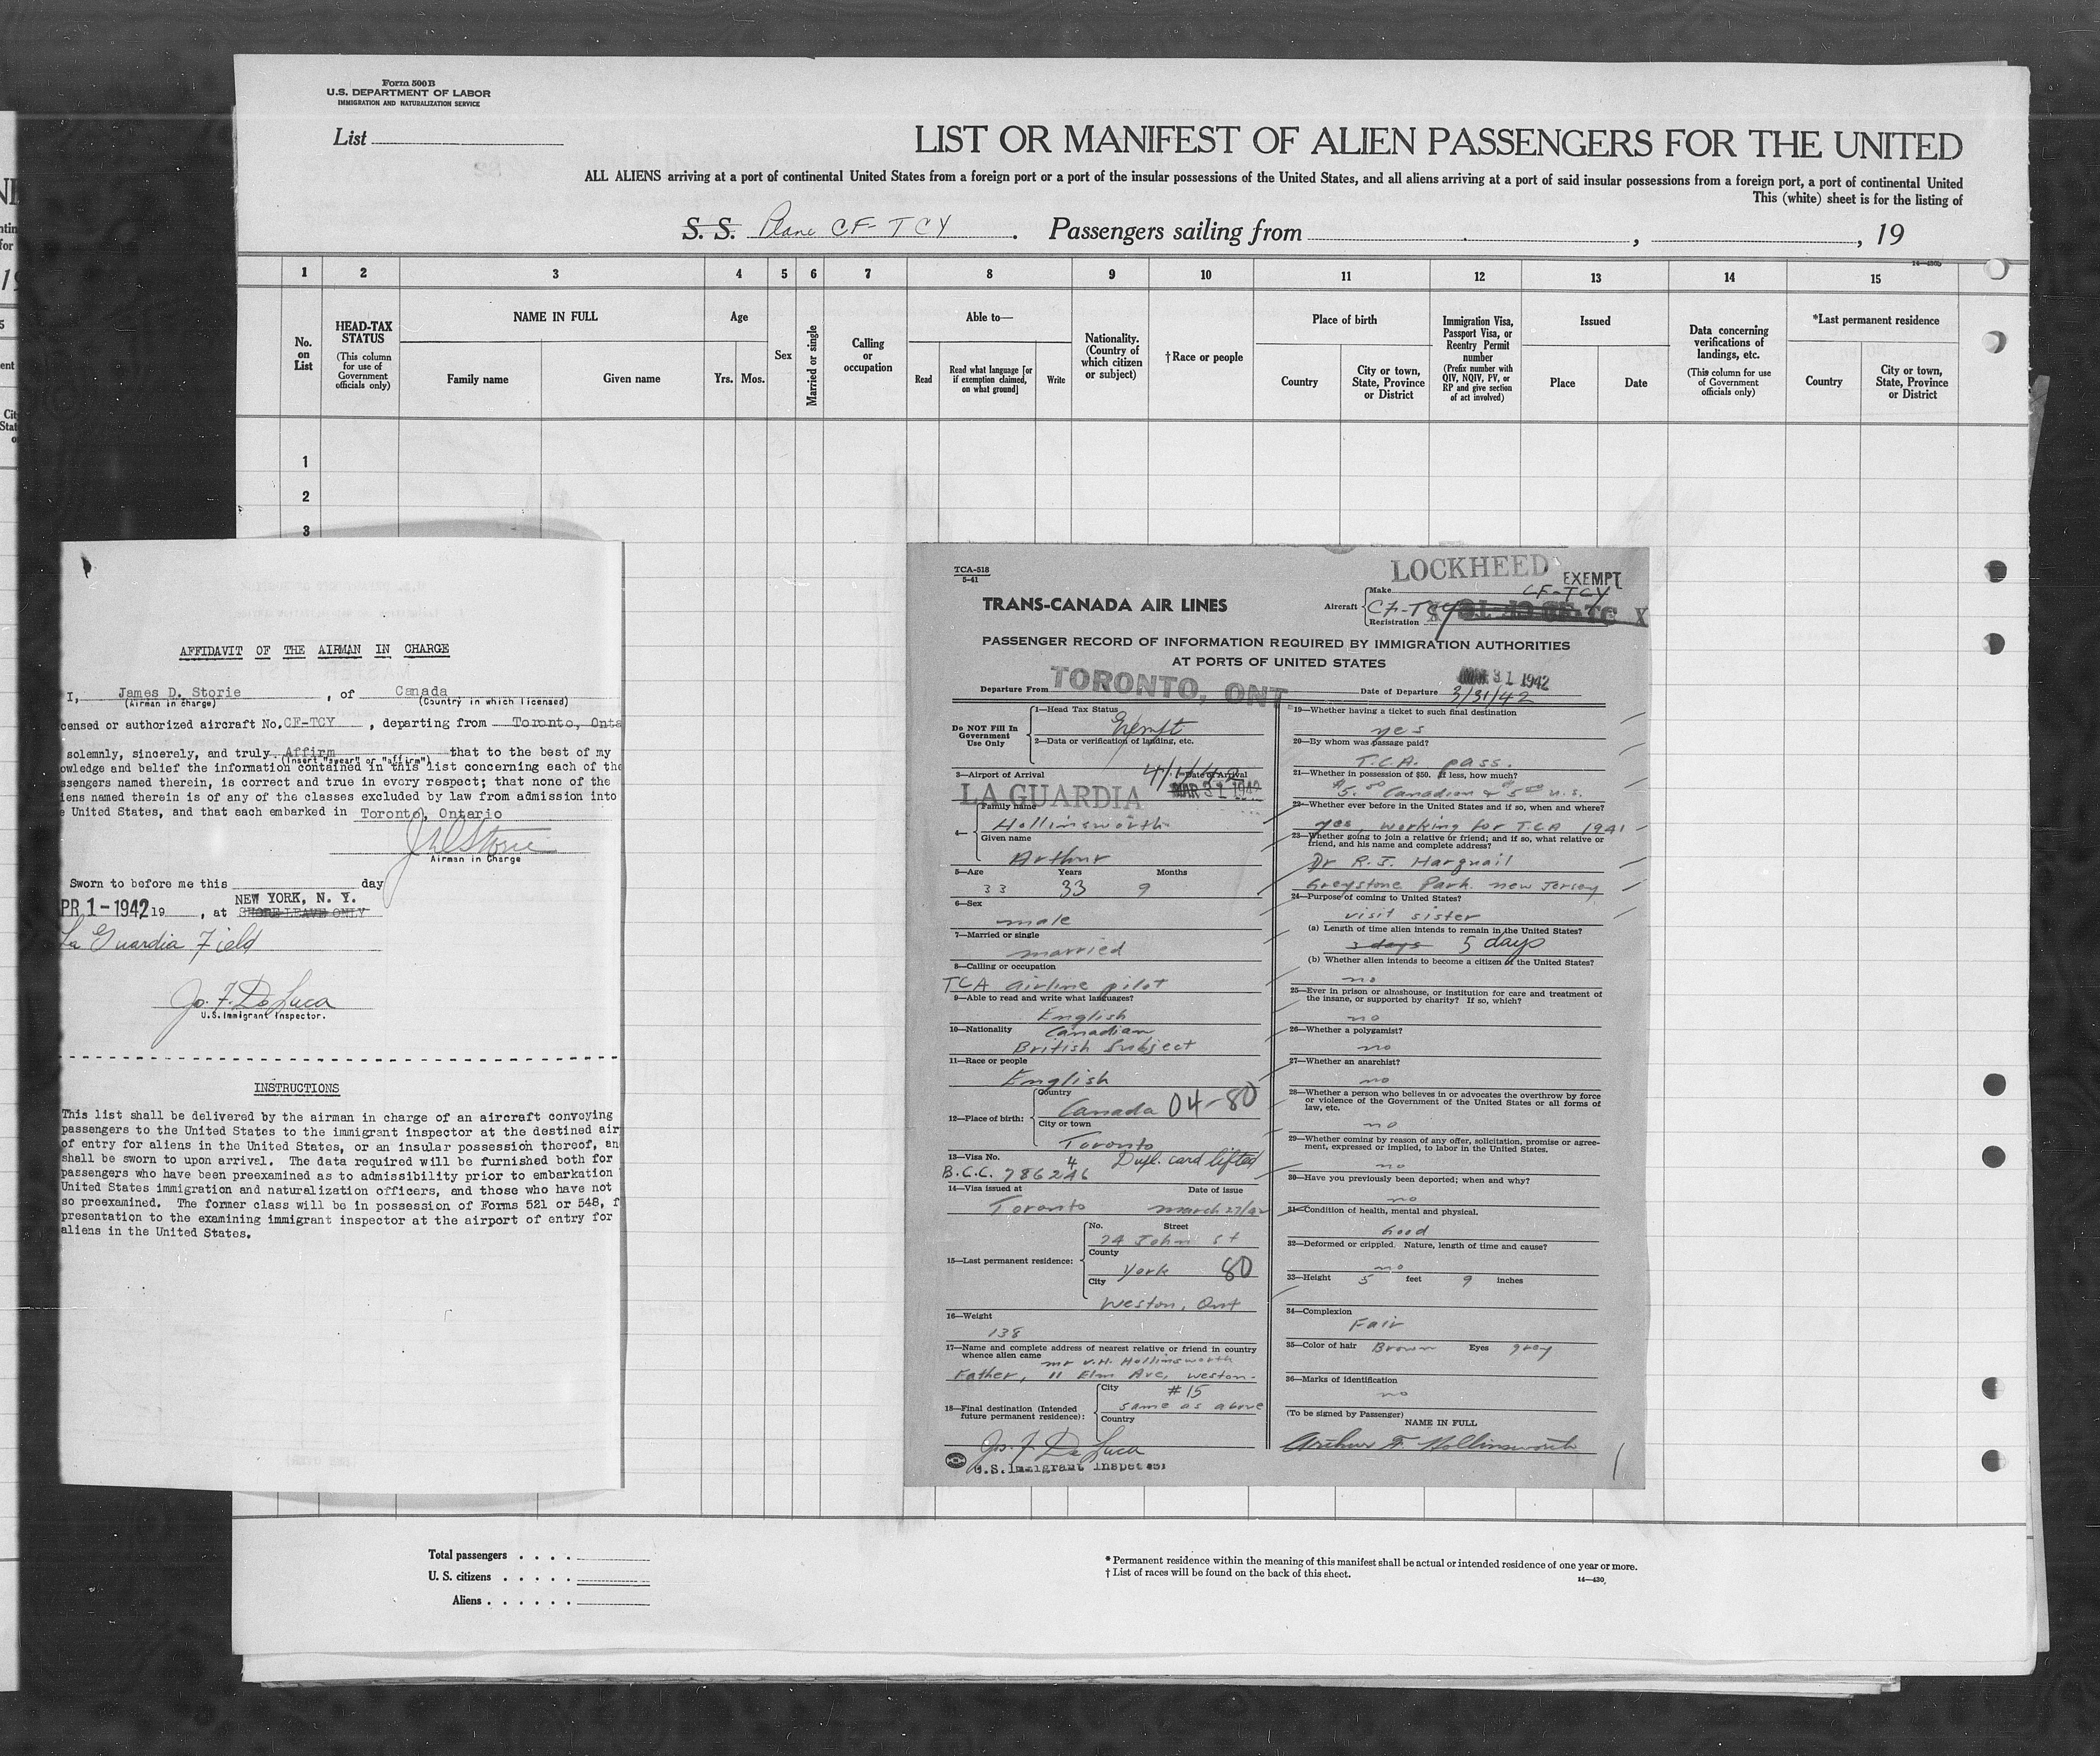 Form 500B
U.S. DEPARTMENT OF LABOR
IMMIGRATION AND NATURALIZATION SERVICE
List
LIST OR MANIFEST OF ALIEN PASSENGERS FOR THE UNITED
ALL ALIENS arriving at a port of continental United States from a foreign port or a port of the insular possessions of the United States, and all aliens arriving at a port of said insular possessions from a foreign port, a port of continental United
This (white) sheet is for the listing of
S. S. Plane CF-TCY. Passengers sailing from , , 19
14—430b
1 2 3 4 5 6 7 8 9 10 11 12 13 14 15
No. on List
HEAD-TAX STATUS
(This column for use of Government officials only)
NAME IN FULL
Family name
Given name
Age
Yrs. Mos.
Sex
Married or single
Calling or occupation
Able to—
Read
Read what language [or if exemption claimed, on what ground]
Write
Nationality. (Country of which citizen or subject)
†Race or people
Place of birth
Country
City or town, State, Province or District
Immigration Visa, Passport Visa, or Reentry Permit number
(Prefix number with QIV, NQIV, PV, or RP and give section of act involved)
Issued
Place
Date
Data concerning verifications of landings, etc.
(This column for use of Government officials only)
*Last permanent residence
Country
City or town, State, Province or District
1
2
3
AFFIDAVIT OF THE AIRMAN IN CHARGE
I, James D. Storie , of Canada
(Airman in charge) (Country in which licensed)
censed or authorized aircraft No. CF-TCY , departing from Toronto, Onta
solemnly, sincerely, and truly Affirm that to the best of my
(Insert "swear" or "affirm")
owledge and belief the information contained in this list concerning each of the
ssengers named therein, is correct and true in every respect; that none of the
iens named therein is of any of the classes excluded by law from admission into
e United States, and that each embarked in Toronto, Ontario
J D Storie
Airman in Charge
Sworn to before me this day
PR 1-1942 19 , at NEW YORK, N. Y.
SHORE LEAVE ONLY
La Guardia Field
Jo. F. De Luca
U.S. Immigrant Inspector.
INSTRUCTIONS
This list shall be delivered by the airman in charge of an aircraft convoying
passengers to the United States to the immigrant inspector at the destined air
of entry for aliens in the United States, or an insular possession thereof, an
shall be sworn to upon arrival. The data required will be furnished both for
passengers who have been preexamined as to admissibility prior to embarkation
United States immigration and naturalization officers, and those who have not
so preexamined. The former class will be in possession of Forms 521 or 548, f
presentation to the examining immigrant inspector at the airport of entry for
aliens in the United States.
TCA-518
5-41
TRANS-CANADA AIR LINES
LOCKHEED
EXEMPT
Aircraft
Make
CF-TCY
CF-TCY
Registration
PASSENGER RECORD OF INFORMATION REQUIRED BY IMMIGRATION AUTHORITIES
AT PORTS OF UNITED STATES
Departure From TORONTO, ONT
MAR 31 1942
Date of Departure 3/31/42
Do NOT Fill In
Government
Use Only
1—Head Tax Status
Exempt
2—Data or verification of landing, etc.
3—Airport of Arrival
LA GUARDIA
4/1/42
Date of Arrival
MAR 31 1942
4—
Family name
Hollinsworth
Given name
Arthur
5—Age Years Months
33 33 9
6—Sex
male
7—Married or single
married
8—Calling or occupation
TCA airline pilot
9—Able to read and write what languages?
English
10—Nationality Canadian
British Subject
11—Race or people
English
12—Place of birth:
Country
Canada 04-80
City or town
Toronto
13—Visa No. 4 Dupl. card lifted
B.C.C. 786246
14—Visa issued at Date of issue
Toronto march 27/42
15—Last permanent residence:
No. Street
74 John St
County
York 80
City
Weston, Ont
16—Weight
138
17—Name and complete address of nearest relative or friend in country
whence alien came mr V.H. Hollinsworth
Father, 11 Elm Ave, Weston.
18—Final destination (Intended
future permanent residence):
City # 15
same as above
Country
Jos. F. De Luca
U.S. Immigrant Inspector
19—Whether having a ticket to such final destination
yes
20—By whom was passage paid?
T.C.A. pass.
21—Whether in possession of $50. If less, how much?
$5.00 Canadian & $5.00 U.S.
22—Whether ever before in the United States and if so, when and where?
yes, working for T.C.A 1941
23—Whether going to join a relative or friend; and if so, what relative or
friend, and his name and complete address?
Dr R.J. Harquail
Greystone Park. new Jersey
24—Purpose of coming to United States?
visit sister
(a) Length of time alien intends to remain in the United States?
3 days 5 days
(b) Whether alien intends to become a citizen of the United States?
no
25—Ever in prison or almshouse, or institution for care and treatment of
the insane, or supported by charity? If so, which?
no
26—Whether a polygamist?
no
27—Whether an anarchist?
no
28—Whether a person who believes in or advocates the overthrow by force
or violence of the Government of the United States or all forms of
law, etc.
no
29—Whether coming by reason of any offer, solicitation, promise or agree-
ment, expressed or implied, to labor in the United States.
no
30—Have you previously been deported; when and why?
no
31—Condition of health, mental and physical.
Good
32—Deformed or crippled. Nature, length of time and cause?
no
33—Height 5 feet 9 inches
34—Complexion
Fair
35—Color of hair Brown Eyes grey
36—Marks of identification
no
(To be signed by Passenger)
NAME IN FULL
Arthur F. Hollinsworth
Total passengers . . . .
U. S. citizens . . . . .
Aliens . . . . . .
* Permanent residence within the meaning of this manifest shall be actual or intended residence of one year or more.
† List of races will be found on the back of this sheet.
14—430